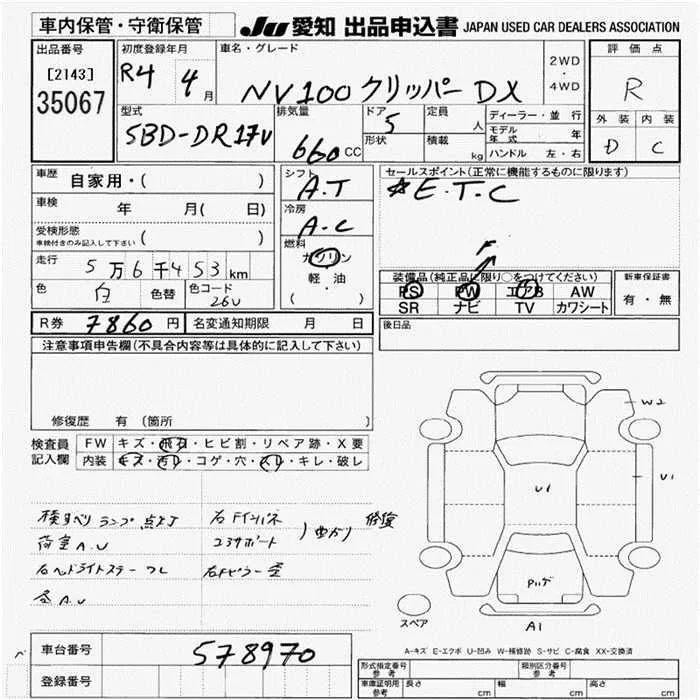 車内保管・守衛保管
JU 愛知 出品申込書 JAPAN USED CAR DEALERS ASSOCIATION
出品番号
[2143]
35067
初度登録年月
R4 4月
車名・グレード
NV100 クリッパー DX
2WD
・
4WD
評価点
R
外装 内装
D C
型式
5BD-DR17V
排気量
660 CC
ドア 5
形状
定員 人
積載 kg
ディーラー・並行
モデル年式 年
ハンドル 左・右
車歴 自家用・( )
車検 年 月( 日)
受検形態
車検付きのみ記入して下さい ( )
走行 5万6千453km
色 白 色替 色コード 26U
シフト
A.T
冷房
A-C
燃料
ガソリン
軽油
( )
セールスポイント(正常に機能するものに限ります)
☆E.T.C
F
装備品(純正品に限り○をつけてください)
PS PW エアB AW
SR ナビ TV カワシート
新車保証書
有・無
R券 7860円 名変通知期限 月 日
後日品
注意事項申告欄(不具合内容等は具体的に記入して下さい)
修復歴 有(箇所 )
検査員
記入欄
FW キズ・飛石・ヒビ割・リペア跡・X要
内装 キズ・汚レ・コゲ・穴・スレ・キレ・破レ
W2
U1
U1
A1
スペア
ランプ 点灯
右Fインパネ
曲がり
修復
荷室 A.U
右ヘッドライトステー
右Fピラー
A.U
A-キズ E-エクボ U-凹み W-補修跡 S-サビ C-腐食 XX-交換済
車台番号 578970
登録番号
形式指定番号
参考
類別区分番号
参考
車庫証明用
参考
長さ cm 幅 cm 高さ cm